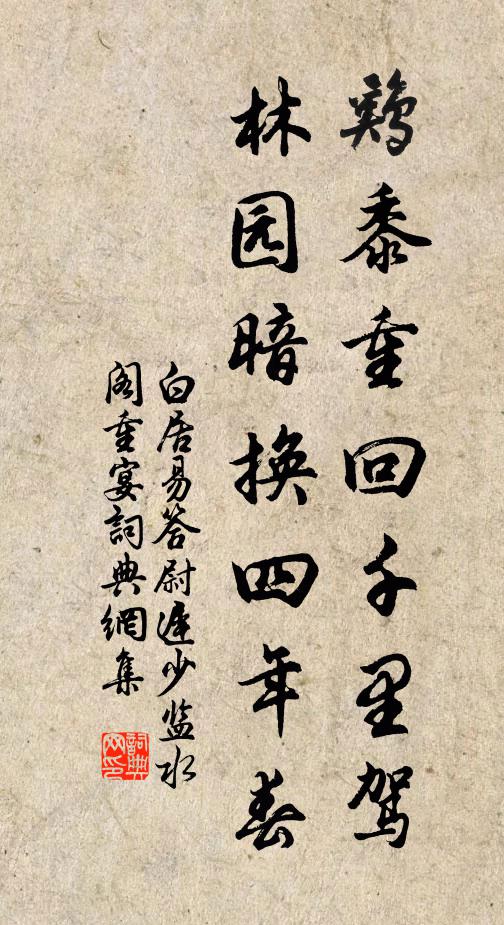 鷄黍重回千里駕
林园暗换四年春
白居易答尉遲少监水
阁重宴詞典網集
詞典网印